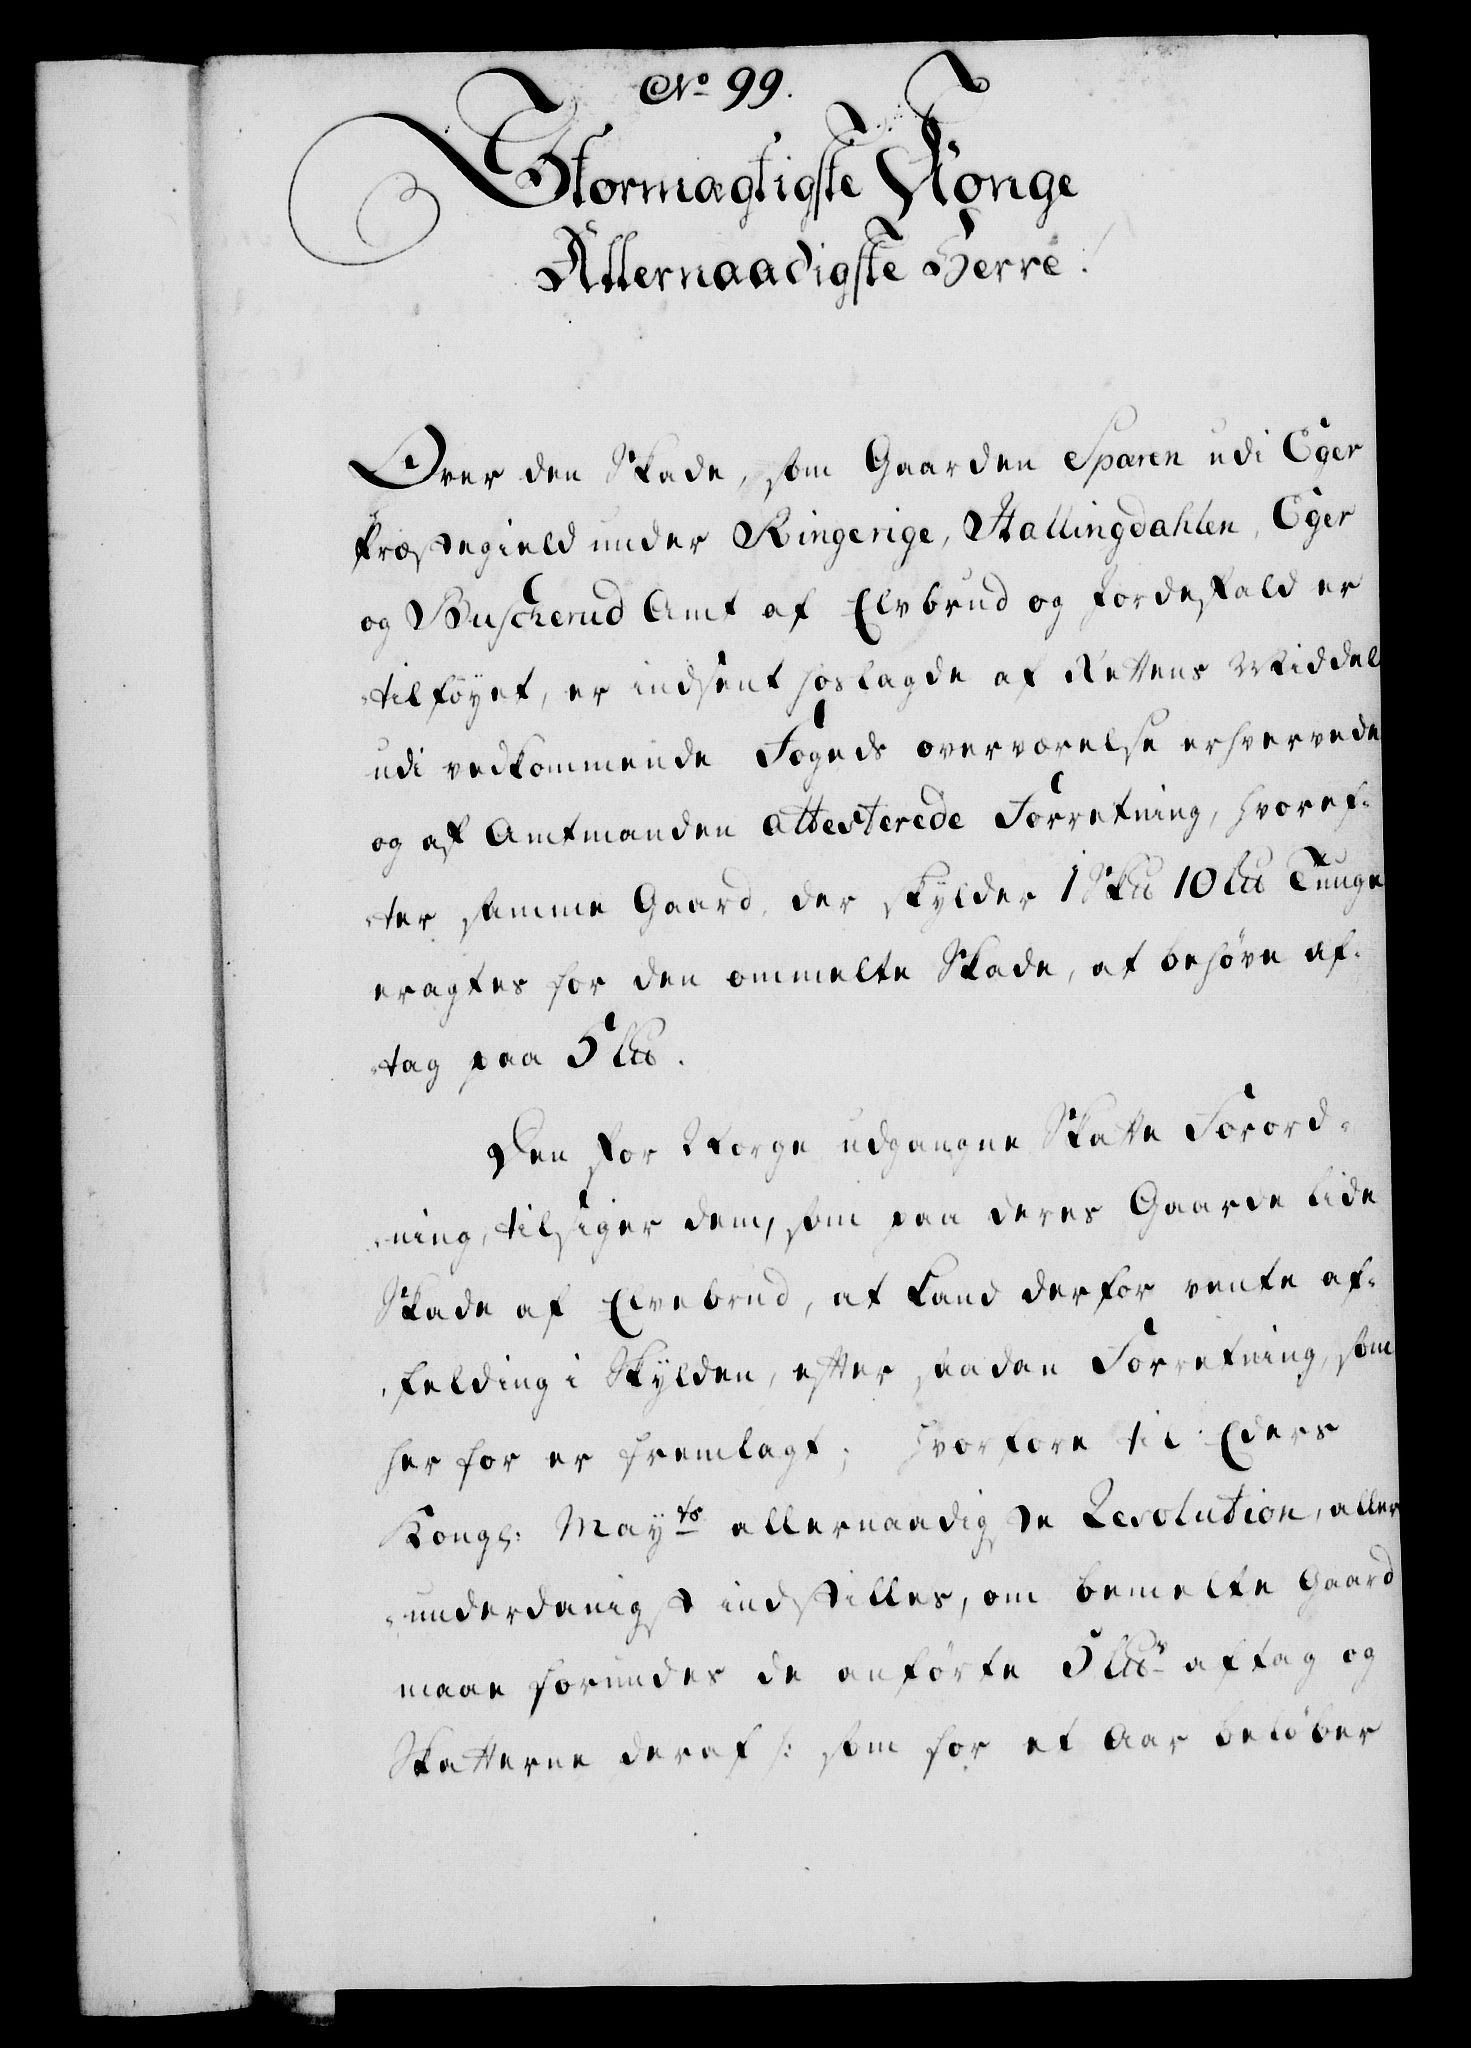 No 99.
Stormægtigste Konge
Allernaadigste Herre!
Over den Skade, som Gaarden Sparen udi Eger
Præstegield under Ringerige, Hallingdahlen, Eger
og Buscherud Amt af Elvbrud og Jordefald er
tilføyet, er indsent hoslagde af Rettens Middel
udi vedkommende Fogeds overværelse erhvervede
og af Amtmanden attesterede Forretning, hvoref-
ter samme Gaard, der skylder 1 Sk℔ 10 L℔ Tunge
eragtes for den ommelte Skade, at behøve af-
tag paa 5 L℔.
Den for Norge udgangne Skatte Forord-
ning, tilsiger dem, som paa deres Gaarde lide
Skade af Elvebrud, at kand derfor vente af-
felding i Skylden, efter saadan Forretning, som
her for er fremlagt; hvorfore til Eders
Kongl: Mayts allernaadigste Resolution, aller
underdanigst indstilles, om bemelte Gaard
maae forundes de anførte 5 L℔r aftag og
Skatterne deraf /: som for et Aar beløber